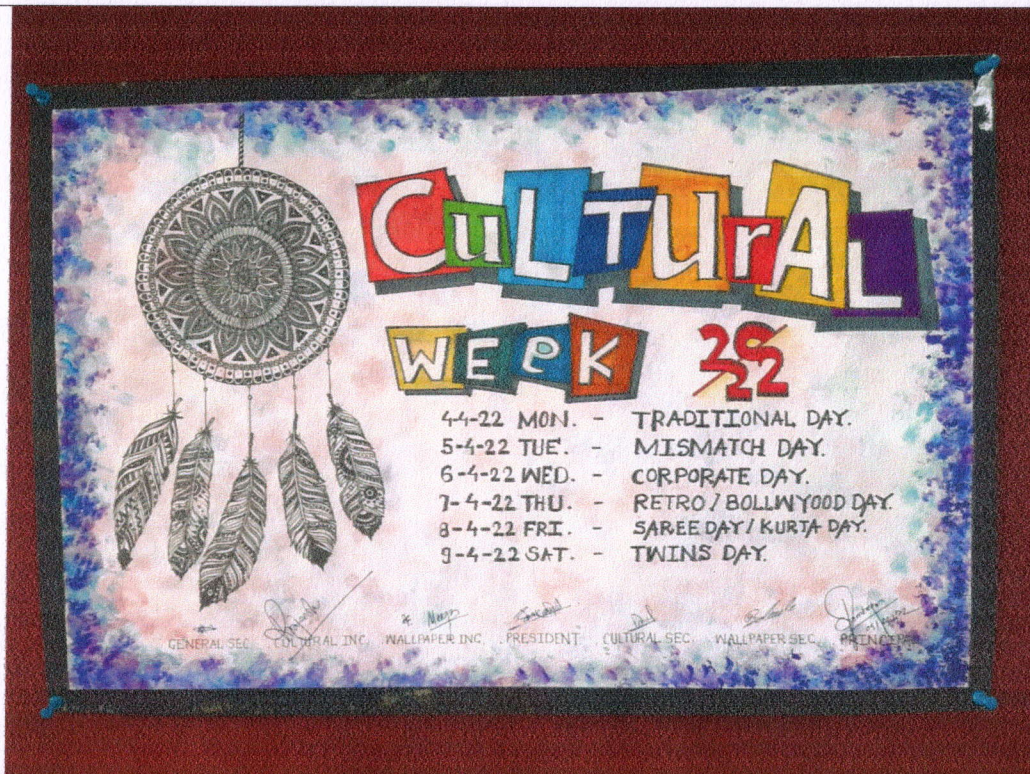 CuLTUrAL
WEeK 2022
4-4-22 MON. - TRADITIONAL DAY.
5-4-22 TUE. - MISMATCH DAY.
6-4-22 WED. - CORPORATE DAY.
7-4-22 THU. - RETRO / BOLLWYOOD DAY.
8-4-22 FRI. - SAREE DAY / KURTA DAY.
9-4-22 SAT. - TWINS DAY.
GENERAL SEC. CULTURAL INC. WALLPAPER INC. PRESIDENT CULTURAL SEC. WALLPAPER SEC. PRINCIPAL